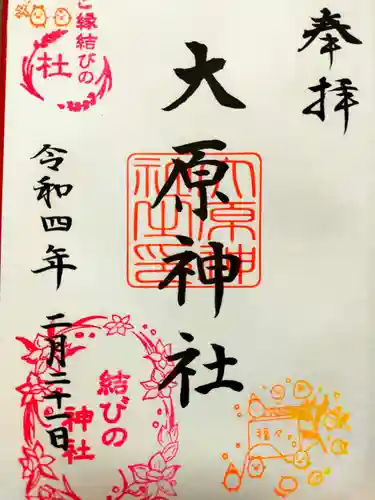 奉拝
大原神社
大原神社之印
令和四年
二月二十一日
ご縁結びの
社
結びの
神社